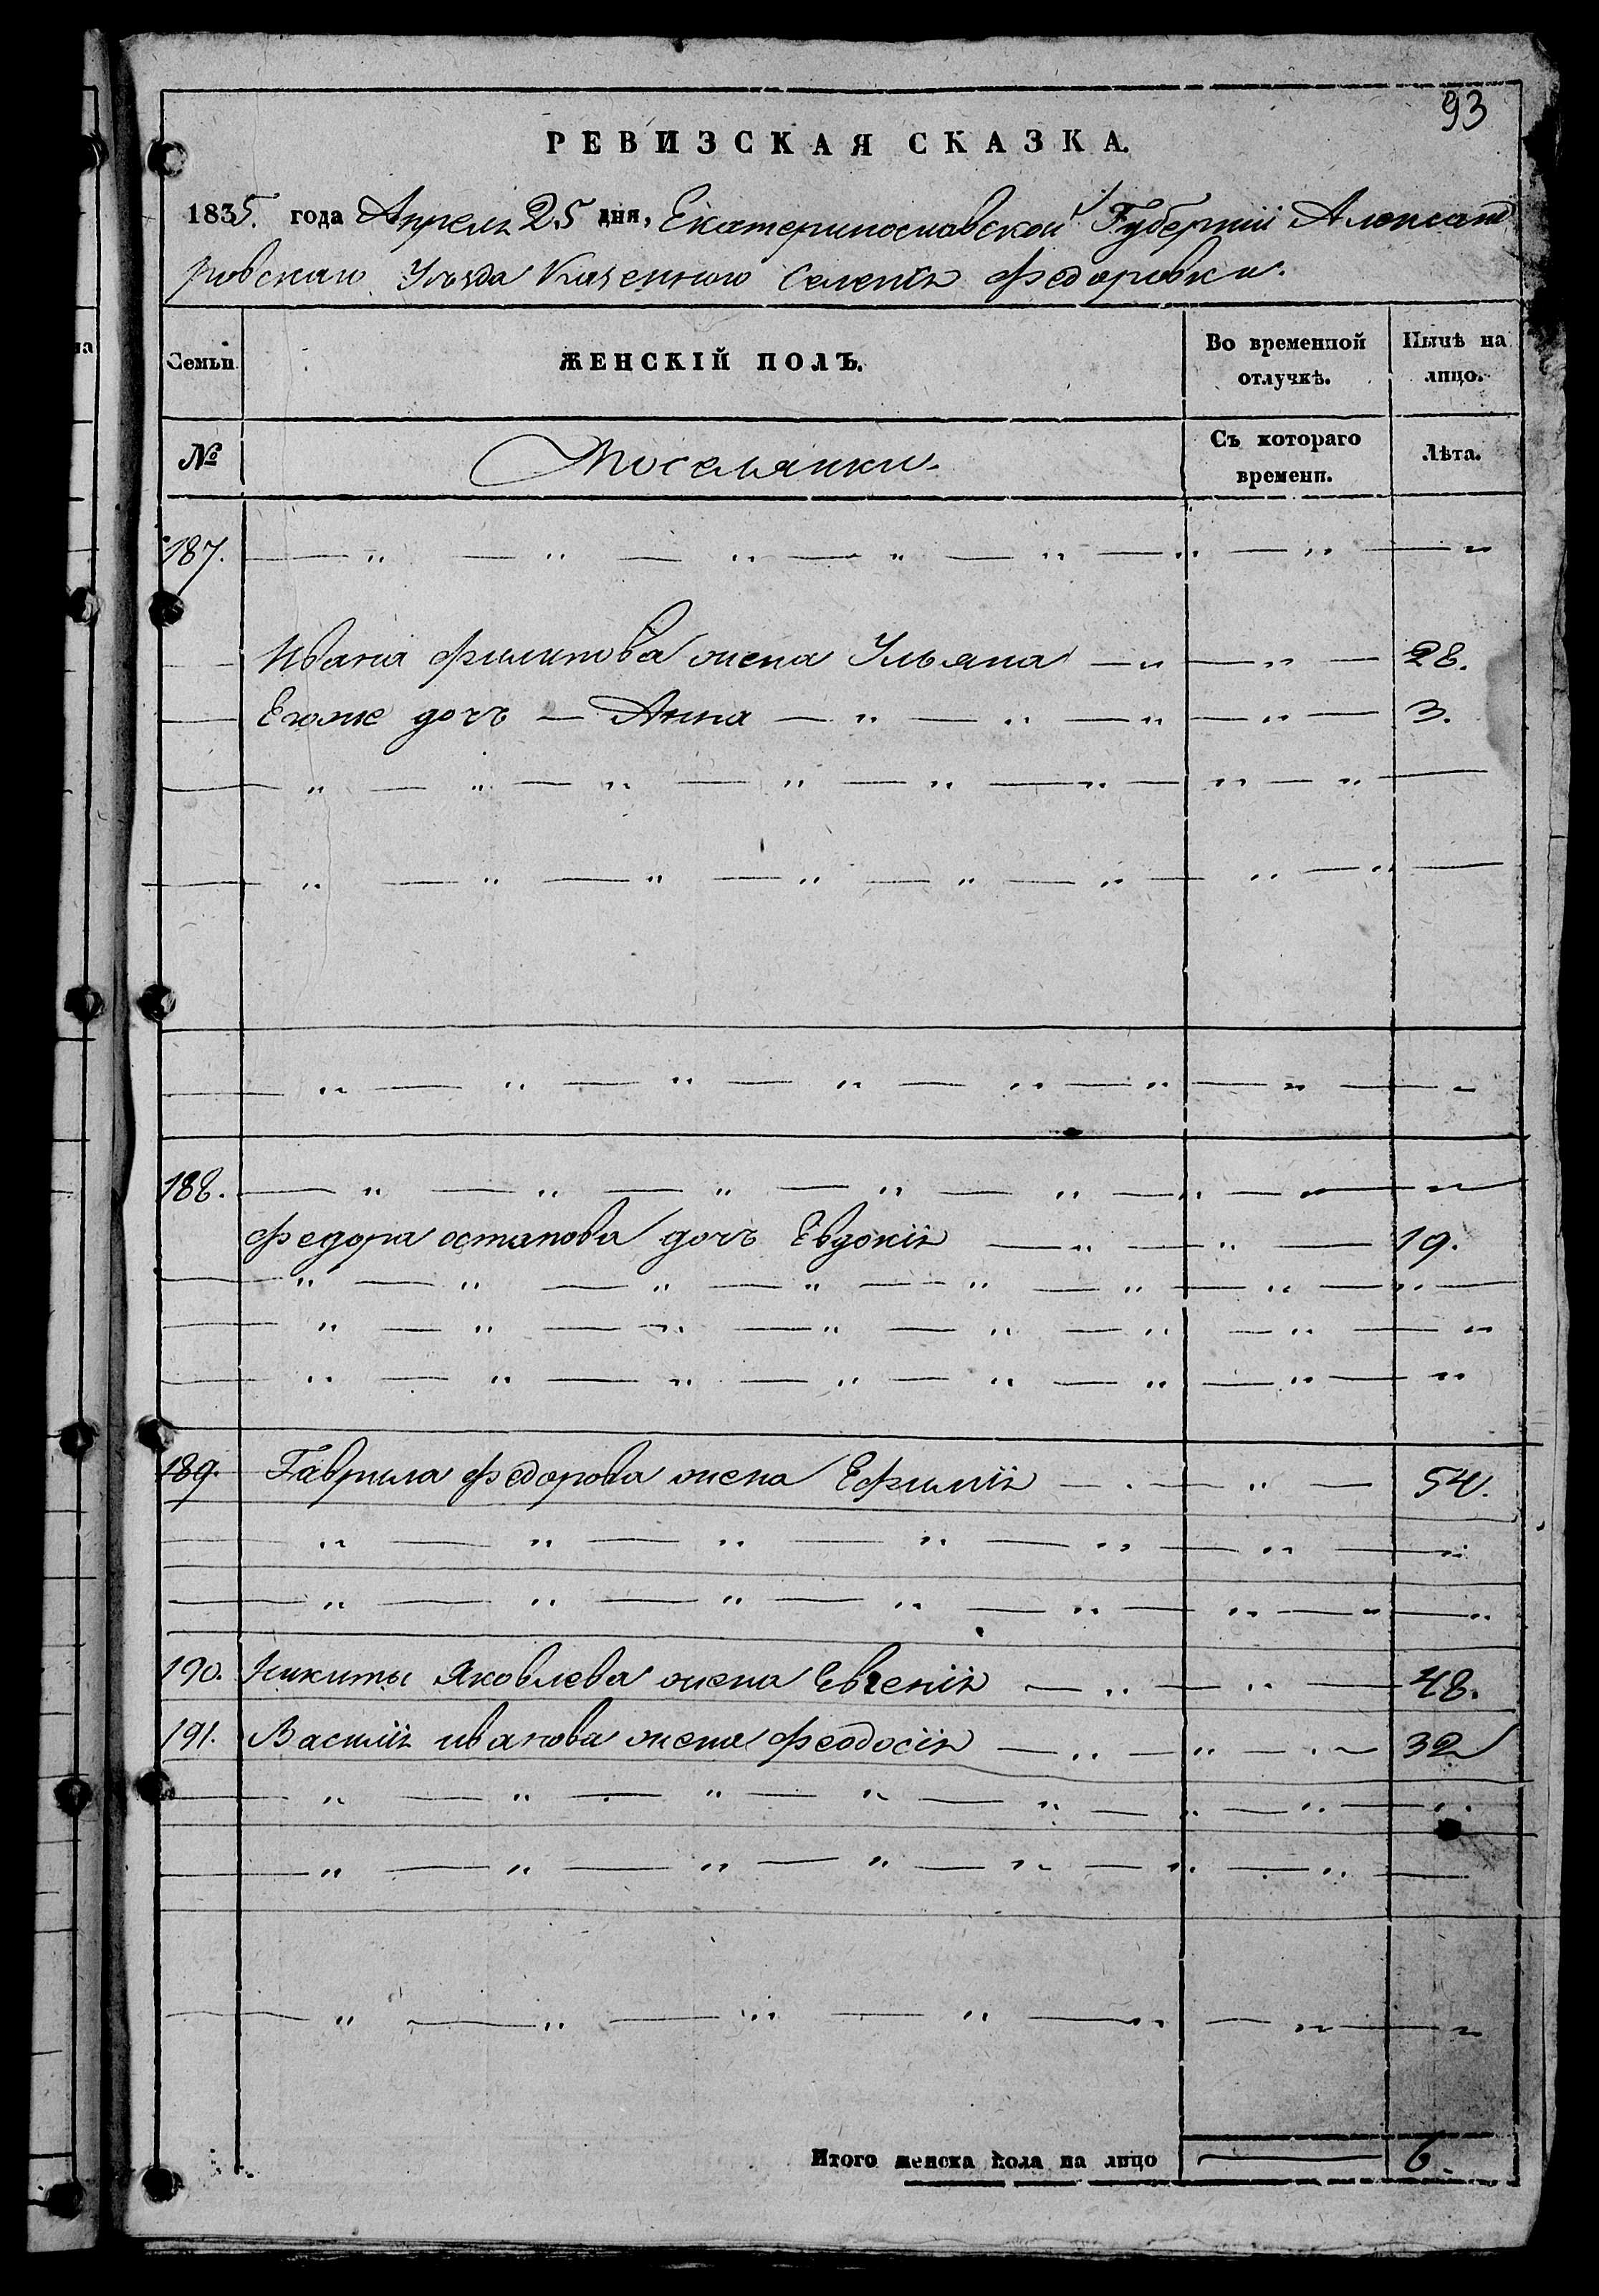 93
РЕВИЗСКАЯ СКАЗКА.
1835. года Апреля 25 дня, Екатеринославской Губерніи Александ
ровскаго Уѣзда Казенного Селенія Федоровки.
на
Семьи
ЖЕНСКІЙ ПОЛЪ.
Во временной отлучкѣ.
Нынѣ на лицо.
№
Поселянки.
Съ котораго времени.
Лѣта.
187. — „ — „ — „ — „ — „ — „ — „ — „
Ивана Филипова жена Ульяна — „ — „ — 28.
Егоже дочь — Анна — „ — „ — „ — „ — 3.
— „ — „ — „ — „ — „ — „ — „ — „ —
— „ — „ — „ — „ — „ — „ — „ — „ —
— „ — „ — „ — „ — „ — „ — „ — „
188. — „ — „ — „ — „ — „ — „ — „ — „
Федора остапова дочь Евдокія — „ — „ — 19.
— „ — „ — „ — „ — „ — „ — „ — „ —
— „ — „ — „ — „ — „ — „ — „ — „
— „ — „ — „ — „ — „ — „ — „ — „
189. Гаврила Федорова жена Ефимія — „ — „ — 54.
— „ — „ — „ — „ — „ — „ — „
— „ — „ — „ — „ — „ — „ — „ — „
190. Никиты Яковлева жена Евгенія — „ — „ — 48.
191. Василія иванова жена Феодосія — „ — „ — „ — 32
— „ — „ — „ — „ — „ — „ — „ — „
— „ — „ — „ — „ — „ — „ — „ —
— „ — „ — „ — „ — „ — „ — „
Итого женска пола на лицо — 6.